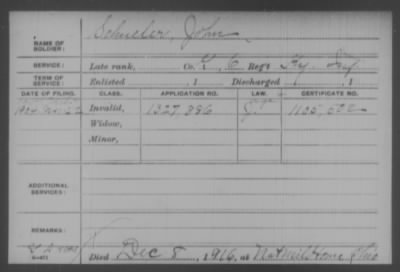 NAME OF SOLDIER: Schueler, John
SERVICE: Late rank, Co. G, 6 Reg't Ky. Inf
TERM OF SERVICE: Enlisted , 1 Discharged , 1
DATE OF FILING. CLASS. APPLICATION NO. LAW. CERTIFICATE NO.
1904 Invalid, 1327,886 1105,
Widow,
Minor,
ADDITIONAL SERVICES:
REMARKS:
Died Dec 8, 1916, at Nat Mil Home Ohio